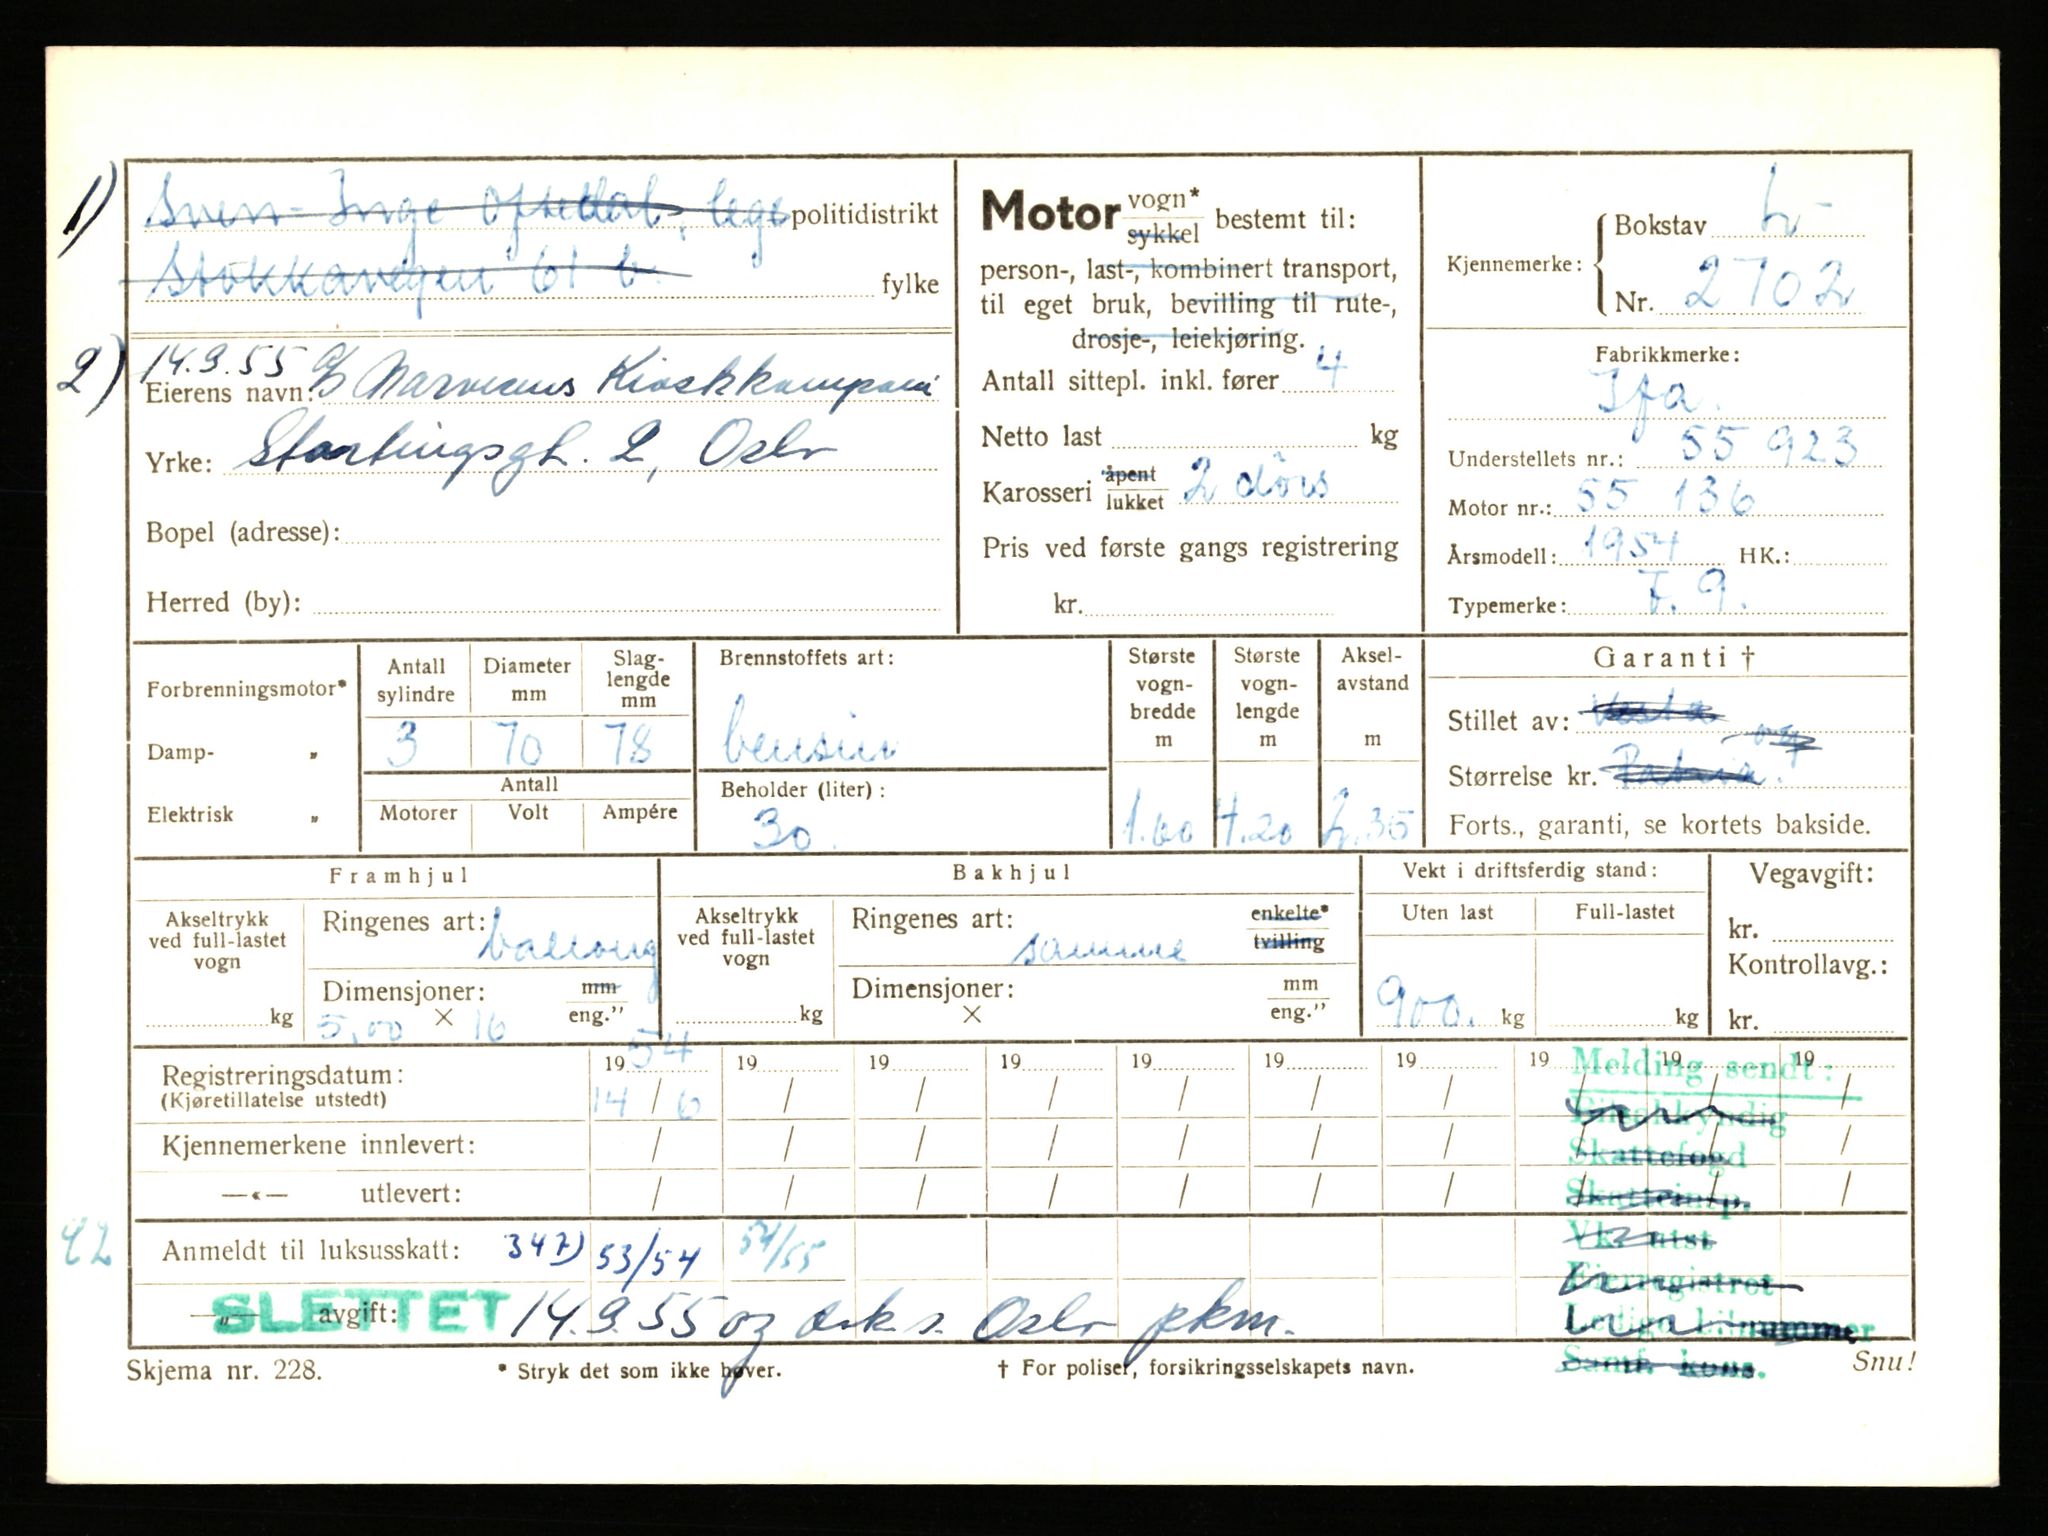 1) Sven-Inge Oftedal, lege politidistrikt
Stokkavegen 61 b. fylke
2) 14.9.55 A/S Narvesens Kioskkompani
Eierens navn:
Yrke: Stortingsgt. 2, Oslo
Bopel (adresse):
Herred (by):
Motor vogn* sykkel bestemt til:
person-, last-, kombinert transport,
til eget bruk, bevilling til rute-,
drosje-, leiekjøring.
Antall sittepl. inkl. fører 4
Netto last kg
Karosseri åpent lukket 2 dörs
Pris ved første gangs registrering
kr.
Kjennemerke: Bokstav L-
Nr. 2702
Fabrikkmerke:
Ifa.
Understellets nr.: 55 923
Motor nr.: 55 136
Årsmodell: 1954 HK.:
Typemerke: F. 9.
Forbrenningsmotor*
Damp- „
Elektrisk „
Antall sylindre Diameter mm Slag-lengde mm
3 70 78
Antall
Motorer Volt Ampére
Brennstoffets art:
bensin
Beholder (liter):
30.
Største vogn-bredde m Største vogn-lengde m Aksel-avstand m
1.60 4.20 2.35
Garanti †
Stillet av: Vesta og
Størrelse kr. Patria.
Forts., garanti, se kortets bakside.
Framhjul
Akseltrykk ved full-lastet vogn
kg
Ringenes art: ballong
Dimensjoner: mm eng.”
5,00 × 16
Bakhjul
Akseltrykk ved full-lastet vogn
kg
Ringenes art: samme enkelte* tvilling
Dimensjoner: mm eng.”
×
Vekt i driftsferdig stand:
Uten last Full-lastet
900. kg kg
Vegavgift:
kr.
Kontrollavg.:
kr.
Registreringsdatum: 1954 19 19 19 19 19 19 19 19 19
(Kjøretillatelse utstedt) 14/6 / / / / / / / / /
Kjennemerkene innlevert: / / / / / / / / / /
—«— utlevert: / / / / / / / / / /
92 Anmeldt til luksusskatt: 347) 53/54 54/55
—„— avgift: SLETTET 14.9.55 og Oslo pkm.
Melding sendt:
Bilsakkyndig
Skattefogd
Skatteinsp.
Vk. utst
Eierregistret
Ledige bilnummer
Samf. kons.
Skjema nr. 228. * Stryk det som ikke høver. † For poliser, forsikringsselskapets navn. Snu!